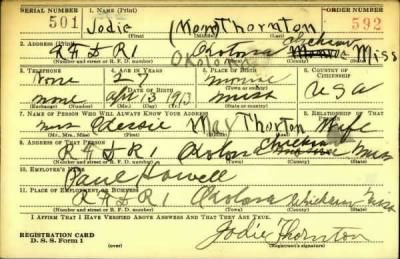 SERIAL NUMBER 1. NAME (Print) ORDER NUMBER
501 Jodie (Mon) Thornton 592
(First) (Middle) (Last)
2. ADDRESS (Print)
R F D R 1 Okolona Chickasaw Miss
OKOLONA
(Number and street or R. F. D. number) (Town) (County) (State)
3. TELEPHONE 4. AGE IN YEARS 5. PLACE OF BIRTH 6. COUNTRY OF CITIZENSHIP
none 27 U S A
DATE OF BIRTH (Town or county)
none Apr 13 1913 Miss
(Exchange) (Number) (Mo.) (Day) (Yr.) (State or country)
7. NAME OF PERSON WHO WILL ALWAYS KNOW YOUR ADDRESS 8. RELATIONSHIP OF THAT PERSON
Mrs Dessie Mae Thorton Wife
(Mr., Mrs., Miss) (First) (Middle) (Last)
9. ADDRESS OF THAT PERSON
R F D R 1 Okolona Chickasaw Miss
(Number and street or R. F. D. number) (Town) (County) (State)
10. EMPLOYER'S NAME
Paul Howell
11. PLACE OF EMPLOYMENT OR BUSINESS
R F D R 1 Okolona Chickasaw Miss
(Number and street or R. F. D. number) (Town) (County) (State)
I AFFIRM THAT I HAVE VERIFIED ABOVE ANSWERS AND THAT THEY ARE TRUE.
REGISTRATION CARD
D. S. S. Form 1
Jodie Thornton
(Registrant's signature)